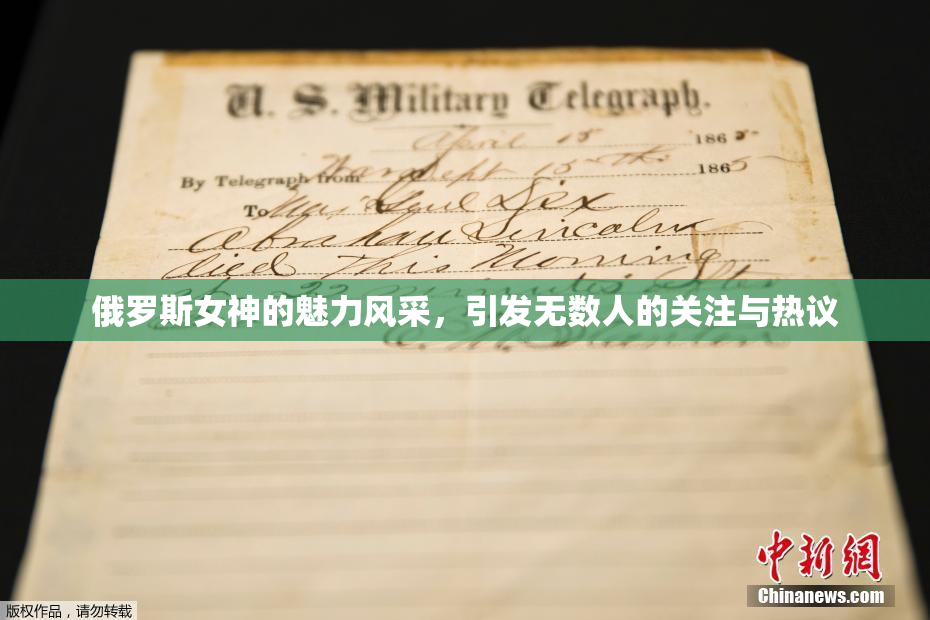 U. S. Military Telegraph.
April 15 1865
By Telegraph from War Dept 15th 1865
To Maj Genl Dix
Abraham Lincoln
died This Morning
at 22 minutes after
俄罗斯女神的魅力风采，引发无数人的关注与热议
E. M. Stanton
中新网
Chinanews.com
版权作品，请勿转载